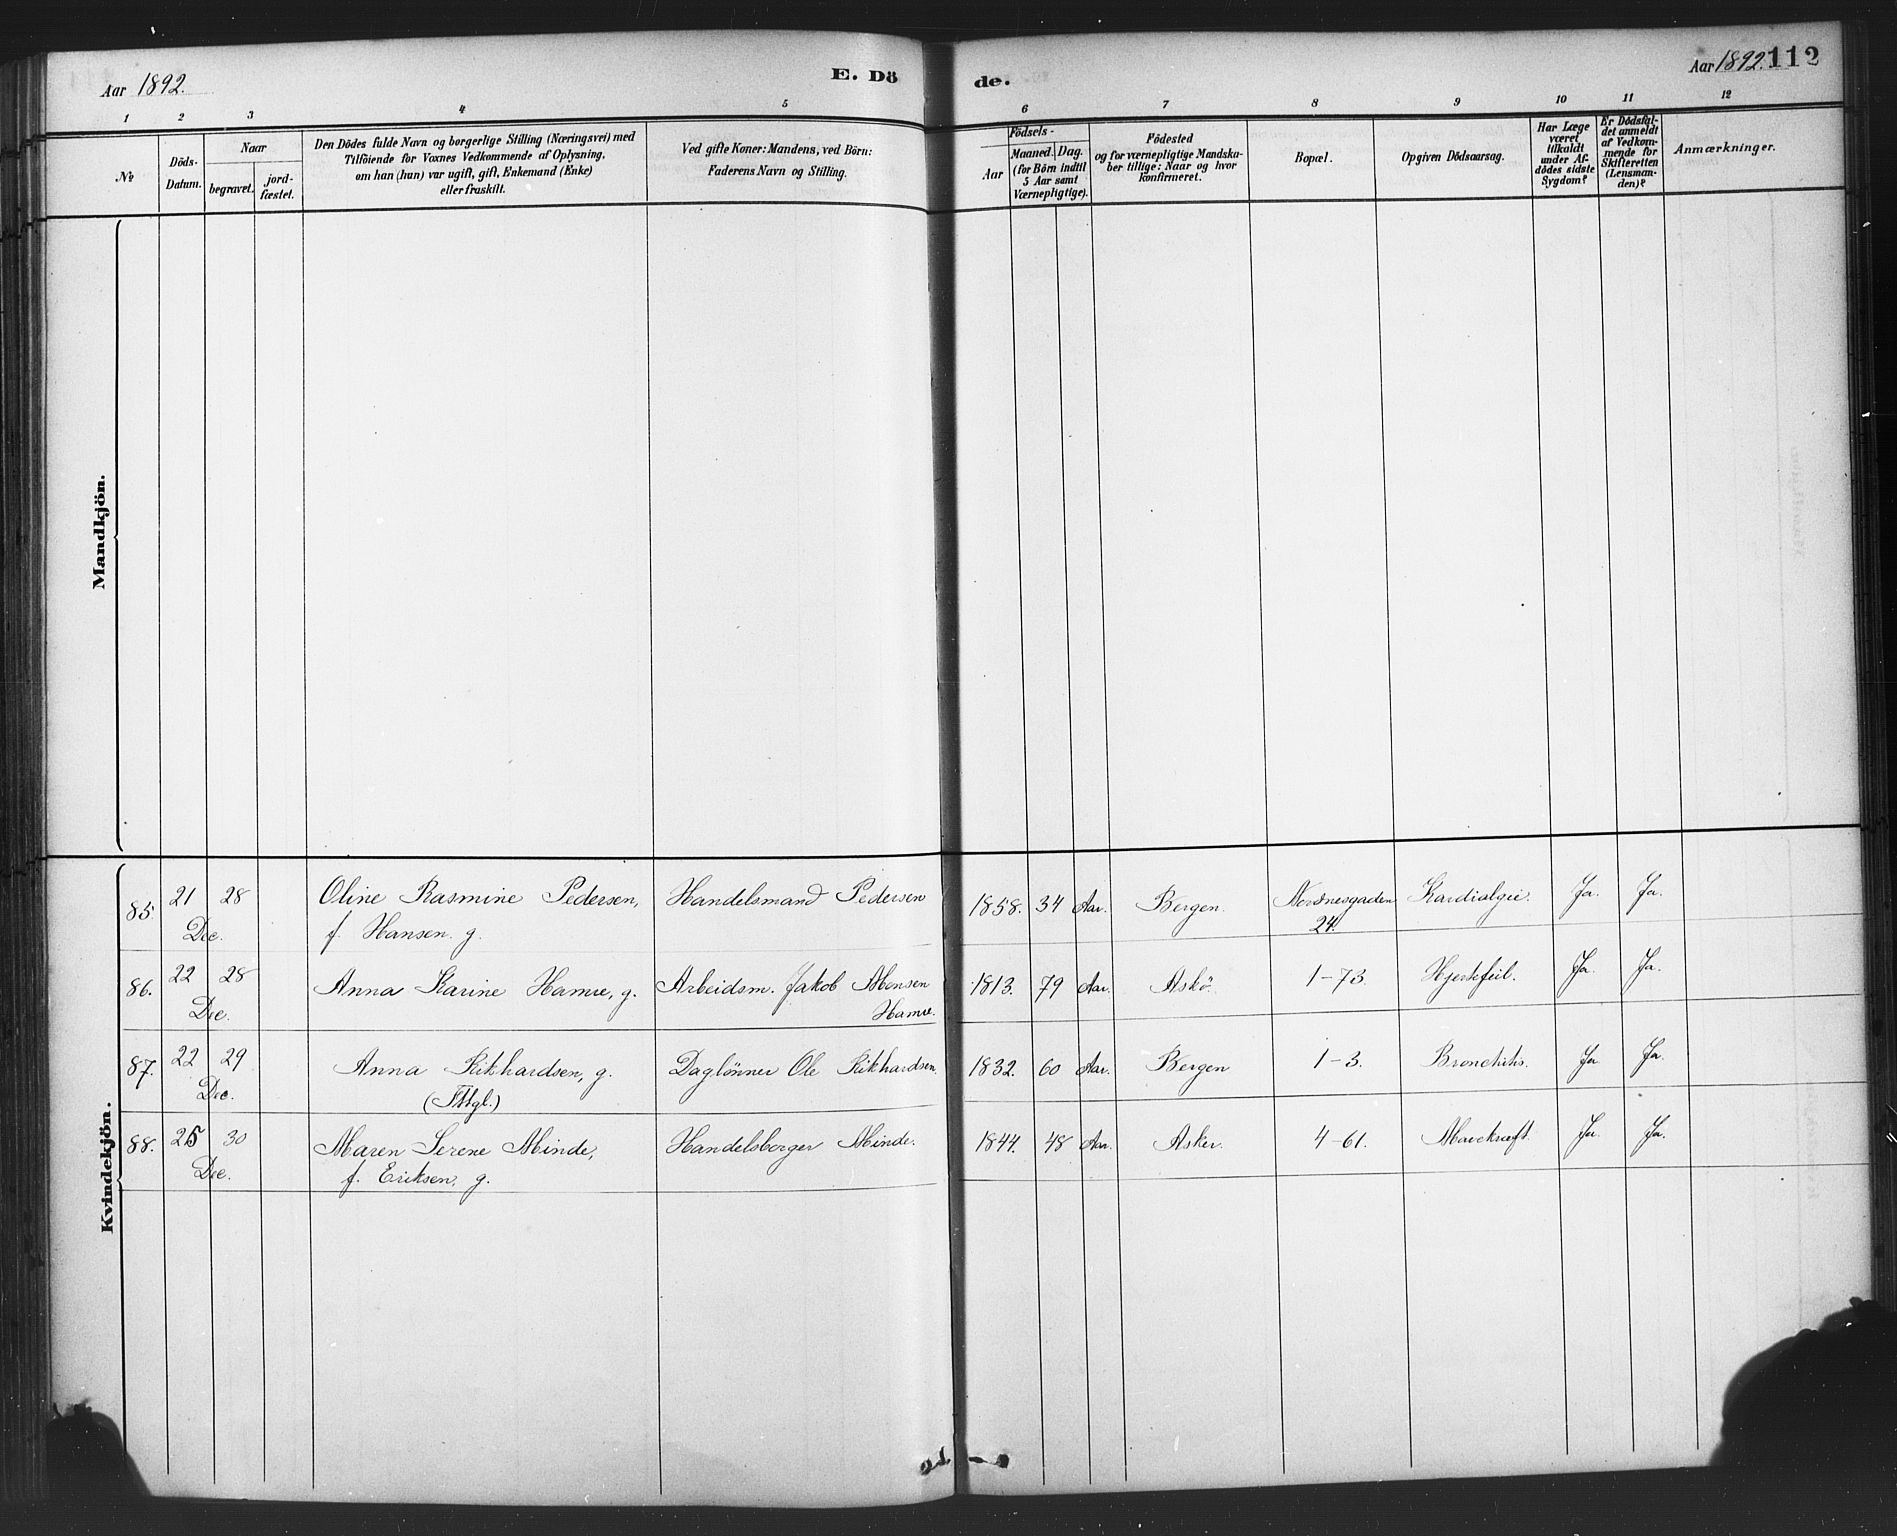 Aar 1892.
E. Dö
de.
Aar 1892. 112
1 2 3 4 5 6 7 8 9 10 11 12
№
Döds-
Datum.
Naar
begravet.
jord-
fæstet.
Den Dödes fulde Navn og borgerlige Stilling (Næringsvei) med
Tilföiende for Voxnes Vedkommende af Oplysning,
om han (hun) var ugift, gift, Enkemand (Enke)
eller fraskilt.
Ved gifte Koner: Mandens, ved Börn:
Faderens Navn og Stilling.
Födsels-
Aar
Maaned. Dag.
(for Börn indtil
5 Aar samt
Værnepligtige).
Födested
og for værnepligtige Mandska-
ber tillige: Naar og hvor
konfirmeret.
Bopæl.
Opgiven Dödsaarsag.
Har Læge
været
tilkaldt
under Af-
dödes sidste
Sygdom?
Er Dödsfal-
det anmeldt
af Vedkom-
mende for
Skifteretten
(Lensman-
den)?
Anmærkninger.
Mandkjön.
Kvindekjön.
85. 21 28 Oline Rasmine Pedersen, Handelsmand Pedersen 1858. 34 Aar. Bergen. Nordnesgaden Kardialgie Ja. Ja.
Dec. f. Hansen. g. 24.
86. 22 28 Anna Karine Hamre, g. Arbeidsm. Jakob Monsen 1813. 79 Aar. Askö. 1-73. Hjertefeil. Ja. Ja.
Dec. Hamre.
87. 22 29 Anna Rikhardsen, g. Daglönner Ole Rikhardsen. 1832. 60 Aar. Bergen 1-3. Bronchitis. Ja Ja.
Dec.
88. 25 30 Maren Serene Minde, Handelsborger Minde. 1844. 48 Aar. Asker. 4-61. Mavekræft. Ja. Ja.
Dec. f. Eriksen, g.